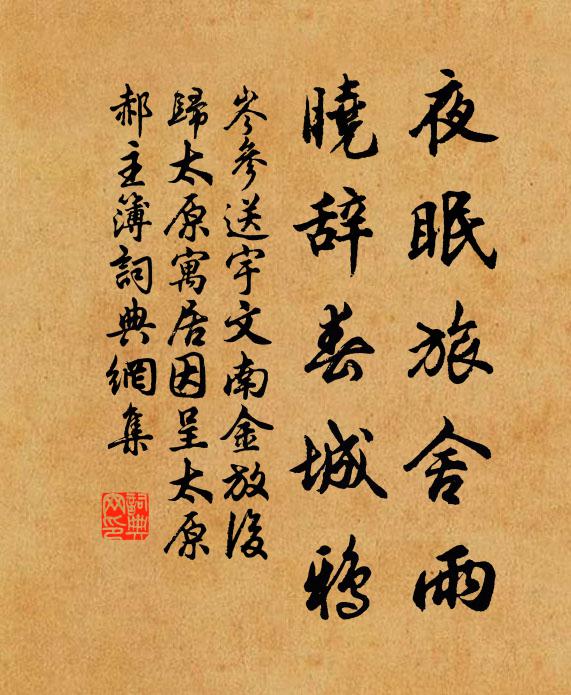 夜眠旅舍雨
曉辞春城鴉
岑參送宇文南金放後
歸太原寓居因呈太原
郝主簿詞典網集
詞典网印